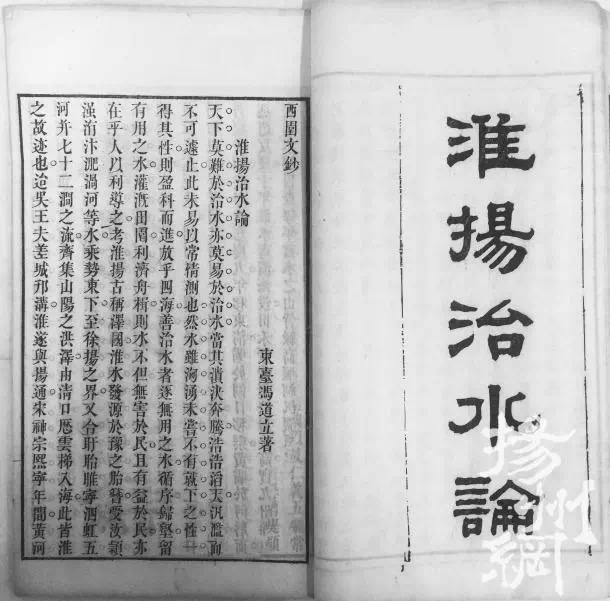 淮揚治水論
揚州網
西園文鈔
淮揚治水論
東臺馮道立著
天下莫難於治水亦莫易於治水當其潰決奔騰浩浩滔天汎濫而
不可遽止此未易以常情測也然水雖洶湧未嘗不有就下之性一
得其性則盈科而進放乎四海善治水者逐無用之水循序歸壑留
有用之水灌溉田園利濟舟楫則水不但無害於民且有益於民亦
在乎人以利導之考淮揚古稱澤國淮水發源於豫之胎簪受汝潁
洧汴淝渦河等水乘勢東下至徐揚之界又合盱眙睢寧泗虹五
河并七十二澗之流齊集山陽之洪澤由清口歷雲梯入海此皆淮
之故迹也迨吳王夫差城邗溝淮遂與揚通宋神宗熙寧年間黃河